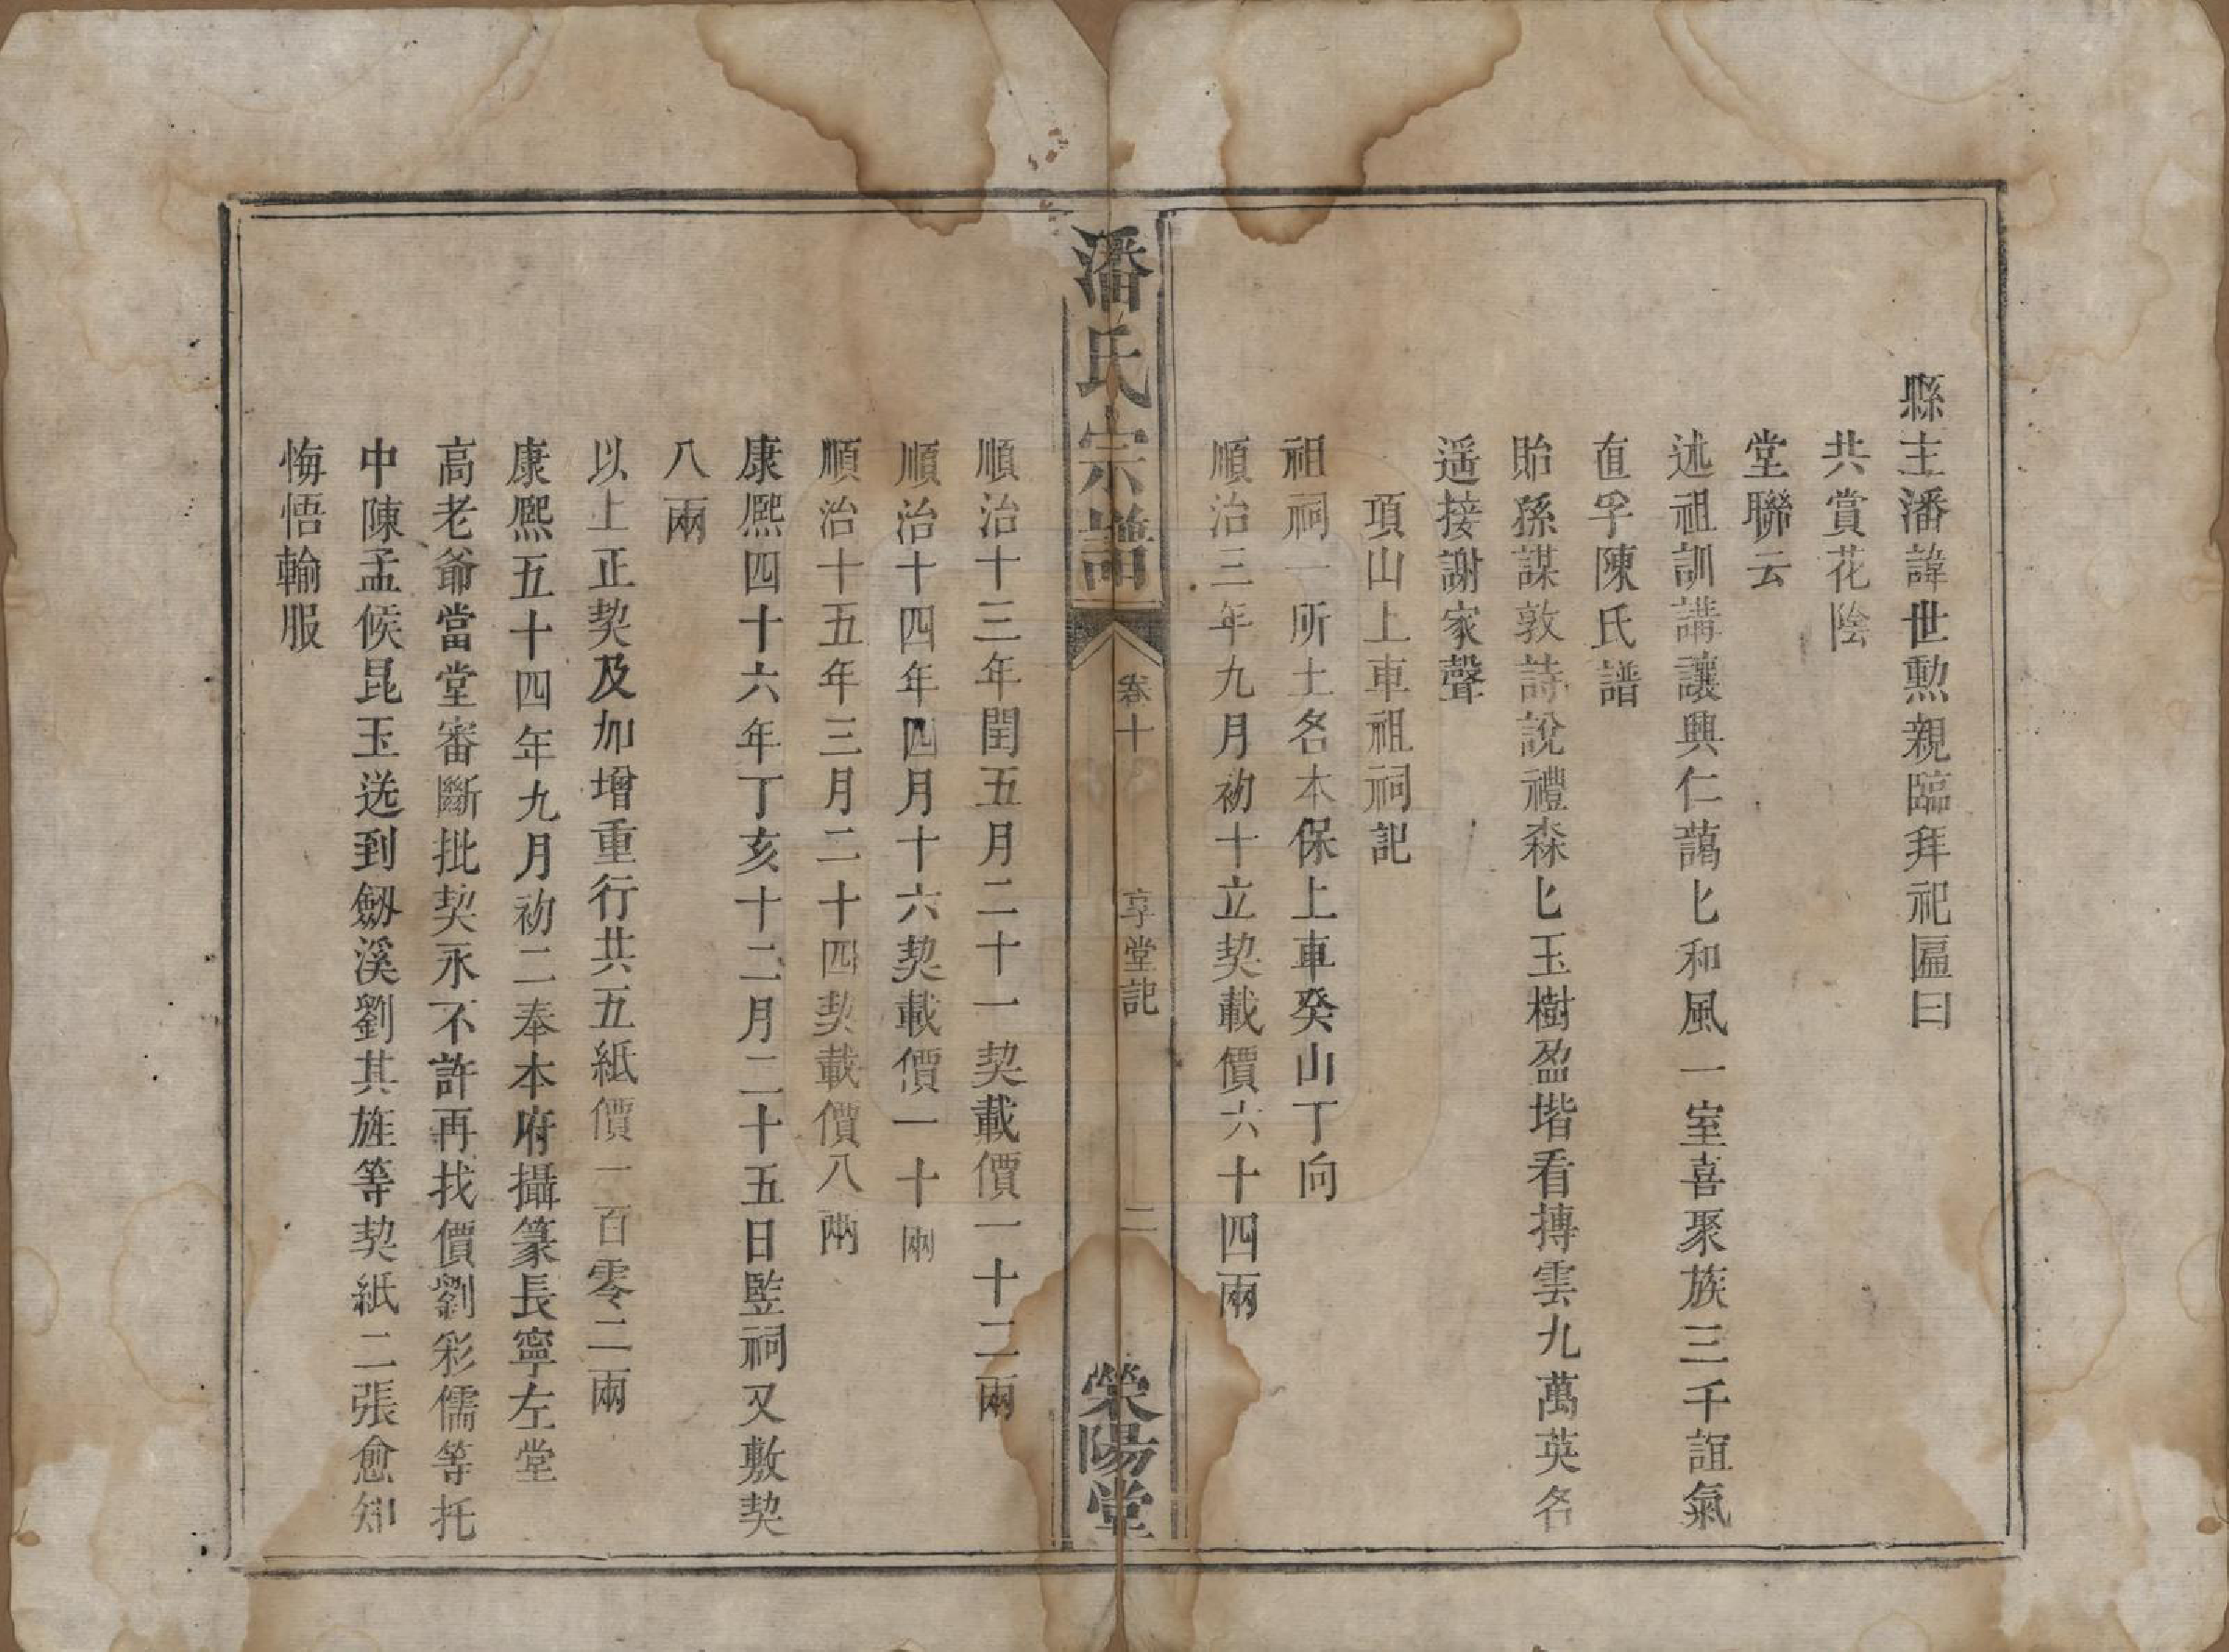 縣主潘諱世勲親臨拜祀匾曰
共賞花陰
堂聯云
述祖訓講讓興仁藹匕和風一室喜聚族三千誼氣
直孚陳氏譜
貽孫謀敦詩說禮森匕玉樹盈堦看摶雲九萬英名
遥接謝家聲
項山上車祖祠記
祖祠一所土名本保上車癸山丁向
順治三年九月初十立契載價六十四兩
潘氏宗譜
卷十
享堂記
二
榮陽堂
順治十三年閏五月二十一契載價一十二兩
順治十四年四月十六契載價一十兩
順治十五年三月二十四契載價八兩
康熈四十六年丁亥十二月二十五日監祠又敷契
八兩
以上正契及加增重行共五紙價一百零二兩
康熈五十四年九月初二奉本府攝篆長寧左堂
高老爺當堂審斷批契永不許再找價劉彩儒等托
中陳孟候昆玉送到劔溪劉其旌等契紙二張愈知
悔悟輸服